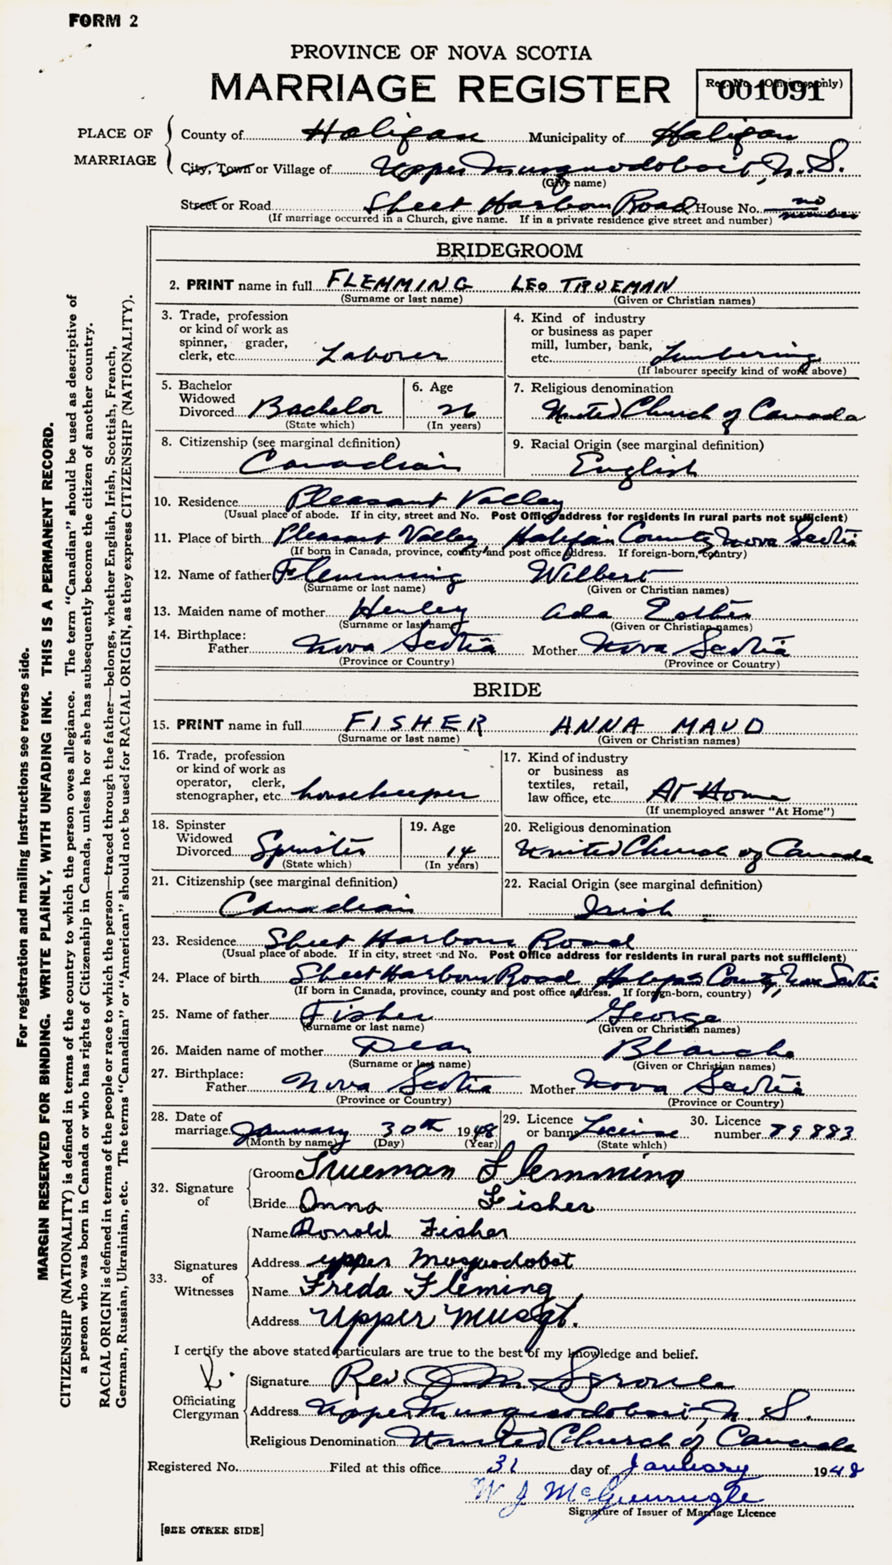 FORM 2
PROVINCE OF NOVA SCOTIA
MARRIAGE REGISTER
Reg. No. (Office use only)
001091
PLACE OF MARRIAGE
County of Halifax Municipality of Halifax
City, Town or Village of Upper Musquodoboit, N. S.
(Give name)
Street or Road Sheet Harbour Road House No. no number
(If marriage occurred in a Church, give name. If in a private residence give street and number)
BRIDEGROOM
2. PRINT name in full FLEMMING LEO TRUEMAN
(Surname or last name) (Given or Christian names)
3. Trade, profession
or kind of work as
spinner, grader,
clerk, etc. Laborer
4. Kind of industry
or business as paper
mill, lumber, bank,
etc. Lumbering
(If labourer specify kind of work above)
5. Bachelor
Widowed
Divorced Bachelor
(State which)
6. Age
26
(In years)
7. Religious denomination
United Church of Canada
8. Citizenship (see marginal definition)
Canadian
9. Racial Origin (see marginal definition)
English
10. Residence Pleasant Valley
(Usual place of abode. If in city, street and No. Post Office address for residents in rural parts not sufficient)
11. Place of birth Pleasant Valley Halifax County, Nova Scotia
(If born in Canada, province, county and post office address. If foreign-born, country)
12. Name of father Flemming Wilbert
(Surname or last name) (Given or Christian names)
13. Maiden name of mother Henley Ada Esther
(Surname or last name) (Given or Christian names)
14. Birthplace:
Father Nova Scotia Mother Nova Scotia
(Province or Country) (Province or Country)
BRIDE
15. PRINT name in full FISHER ANNA MAUD
(Surname or last name) (Given or Christian names)
16. Trade, profession
or kind of work as
operator, clerk,
stenographer, etc. housekeeper
17. Kind of industry
or business as
textiles, retail,
law office, etc. At Home
(If unemployed answer "At Home")
18. Spinster
Widowed
Divorced Spinster
(State which)
19. Age
14
(In years)
20. Religious denomination
United Church of Canada
21. Citizenship (see marginal definition)
Canadian
22. Racial Origin (see marginal definition)
Irish
23. Residence Sheet Harbour Road
(Usual place of abode. If in city, street and No. Post Office address for residents in rural parts not sufficient)
24. Place of birth Sheet Harbour Road Halifax County, Nova Scotia
(If born in Canada, province, county and post office address. If foreign-born, country)
25. Name of father Fisher George
(Surname or last name) (Given or Christian names)
26. Maiden name of mother Dean Blanche
(Surname or last name) (Given or Christian names)
27. Birthplace:
Father Nova Scotia Mother Nova Scotia
(Province or Country) (Province or Country)
28. Date of
marriage January 30th 1948
(Month by name) (Day) (Year)
29. Licence
or banns License
(State which)
30. Licence
number 89883
32. Signature of
Groom Trueman Flemming
Bride Anna Fisher
33. Signatures of Witnesses
Name Donald Fisher
Address upper Musquodobot
Name Freda Fleming
Address Upper Musqt.
I certify the above stated particulars are true to the best of my knowledge and belief.
Officiating Clergyman
Signature Rev J M Sproule
Address Upper Musquodoboit, N. S.
Religious Denomination United Church of Canada
Registered No. Filed at this office 31 day of January 1948
W J McGunnigle
Signature of Issuer of Marriage Licence
[SEE OTHER SIDE]
For registration and mailing instructions see reverse side.
MARGIN RESERVED FOR BINDING. WRITE PLAINLY, WITH UNFADING INK. THIS IS A PERMANENT RECORD.
CITIZENSHIP (NATIONALITY) is defined in terms of the country to which the person owes allegiance. The term "Canadian" should be used as descriptive of
a person who was born in Canada or who has rights of Citizenship in Canada, unless he or she has subsequently become the citizen of another country.
RACIAL ORIGIN is defined in terms of the people or race to which the person—traced through the father—belongs, whether English, Irish, Scottish, French,
German, Russian, Ukrainian, etc. The terms "Canadian" or "American" should not be used for RACIAL ORIGIN, as they express CITIZENSHIP (NATIONALITY).